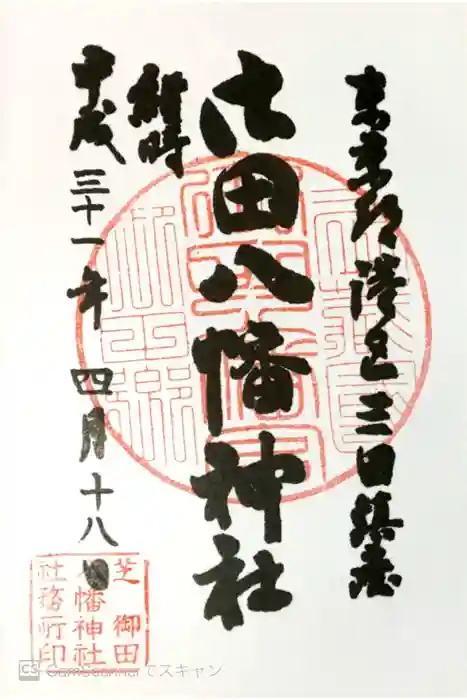 東京都港区三田鎮座
御田八幡神社
平成三十一年四月十八日
芝御田
八幡神社
社務所印
CS CamScannerでスキャン